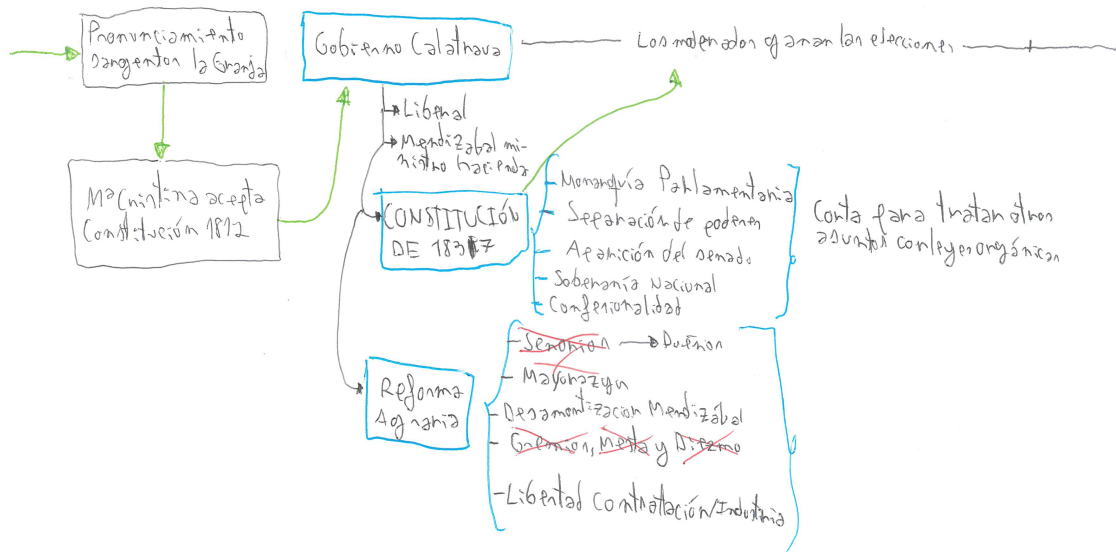 Pronunciamiento
sargentos la Granja
Gobierno Calatrava
Los moderados ganan las elecciones
Liberal
Mendizabal mi-
nistro hacienda
Mª Cristina acepta
Constitución 1812
CONSTITUCIÓN
DE 1837
- Monarquía Parlamentaria
- Separación de poderes
- Aparición del senado
- Soberanía Nacional
- Confesionalidad
Corta para tratar otros
asuntos con leyes orgánicas
Reforma
Agraria
- Señoríos → Dueños
- Mayorazgos
- Desamortización Mendizábal
- Gremios, Mesta y Diezmo
- Libertad Contratación/Industria